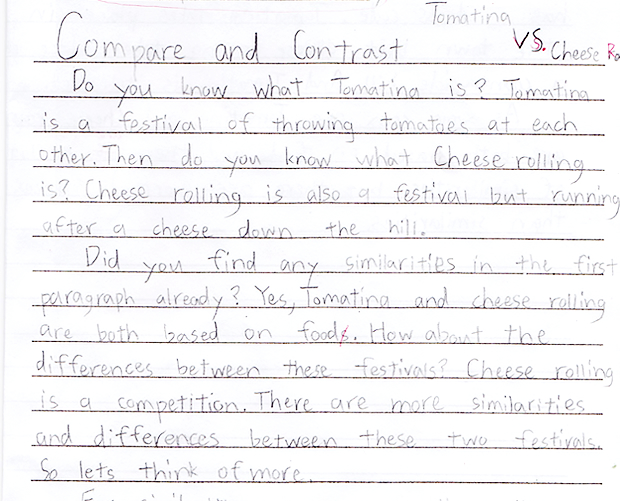 Tomatina
Compare and Contrast VS. Cheese Ro
Do you know what Tomatina is? Tomatina
is a festival of throwing tomatoes at each
other. Then do you know what Cheese rolling
is? Cheese rolling is also a festival but running
after a cheese down the hill.
Did you find any similarities in the first
paragraph already? Yes, Tomatina and cheese rolling
are both based on foods. How about the
differences between these festivals? Cheese rolling
is a competition. There are more similarities
and differences between these two festivals.
So lets think of more.